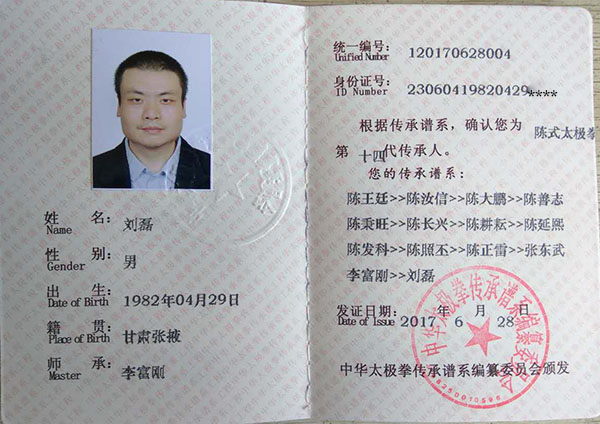 姓 名：
Name
刘磊
性 别：
Gender
男
出 生：
Date of Birth
1982年04月29日
籍 贯：
Place of Birth
甘肃张掖
师 承：
Master
李富刚
统一编号：
Unified Number
120170628004
身份证号：
ID Number
23060419820429****
根据传承谱系，确认您为 陈式太极拳
第 十四 代传承人。
您的传承谱系：
陈王廷>>陈汝信>>陈大鹏>>陈善志
陈秉旺>>陈长兴>>陈耕耘>>陈延熙
陈发科>>陈照丕>>陈正雷>>张东武
李富刚>>刘磊
发证日期：
Date of Issue
2017 年 6 月 28 日
中华太极拳传承谱系编纂委员会颁发
中华太极拳传承谱系编纂委员会